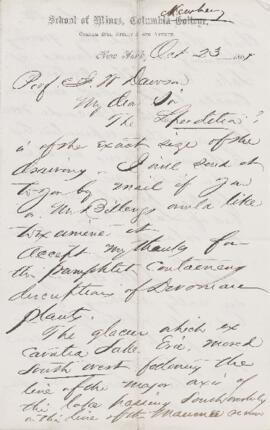 Newberry
School of Mines, Columbia College,
New York, Oct 23 186
Prof J. W Dawson
My dear Sir
The Lepidodendron?
is of the exact size of the
drawing. I will send it
to you by mail if you
or Mr Billings would like
to examine it
Accept my thanks for
the pamphlet containing
descriptions of Devonian
plants.
The glacier which ex
cavated Lake Erie, moved
south west following the
line of the major axis of
the lake passing southwesterly
on the line of the Maumee